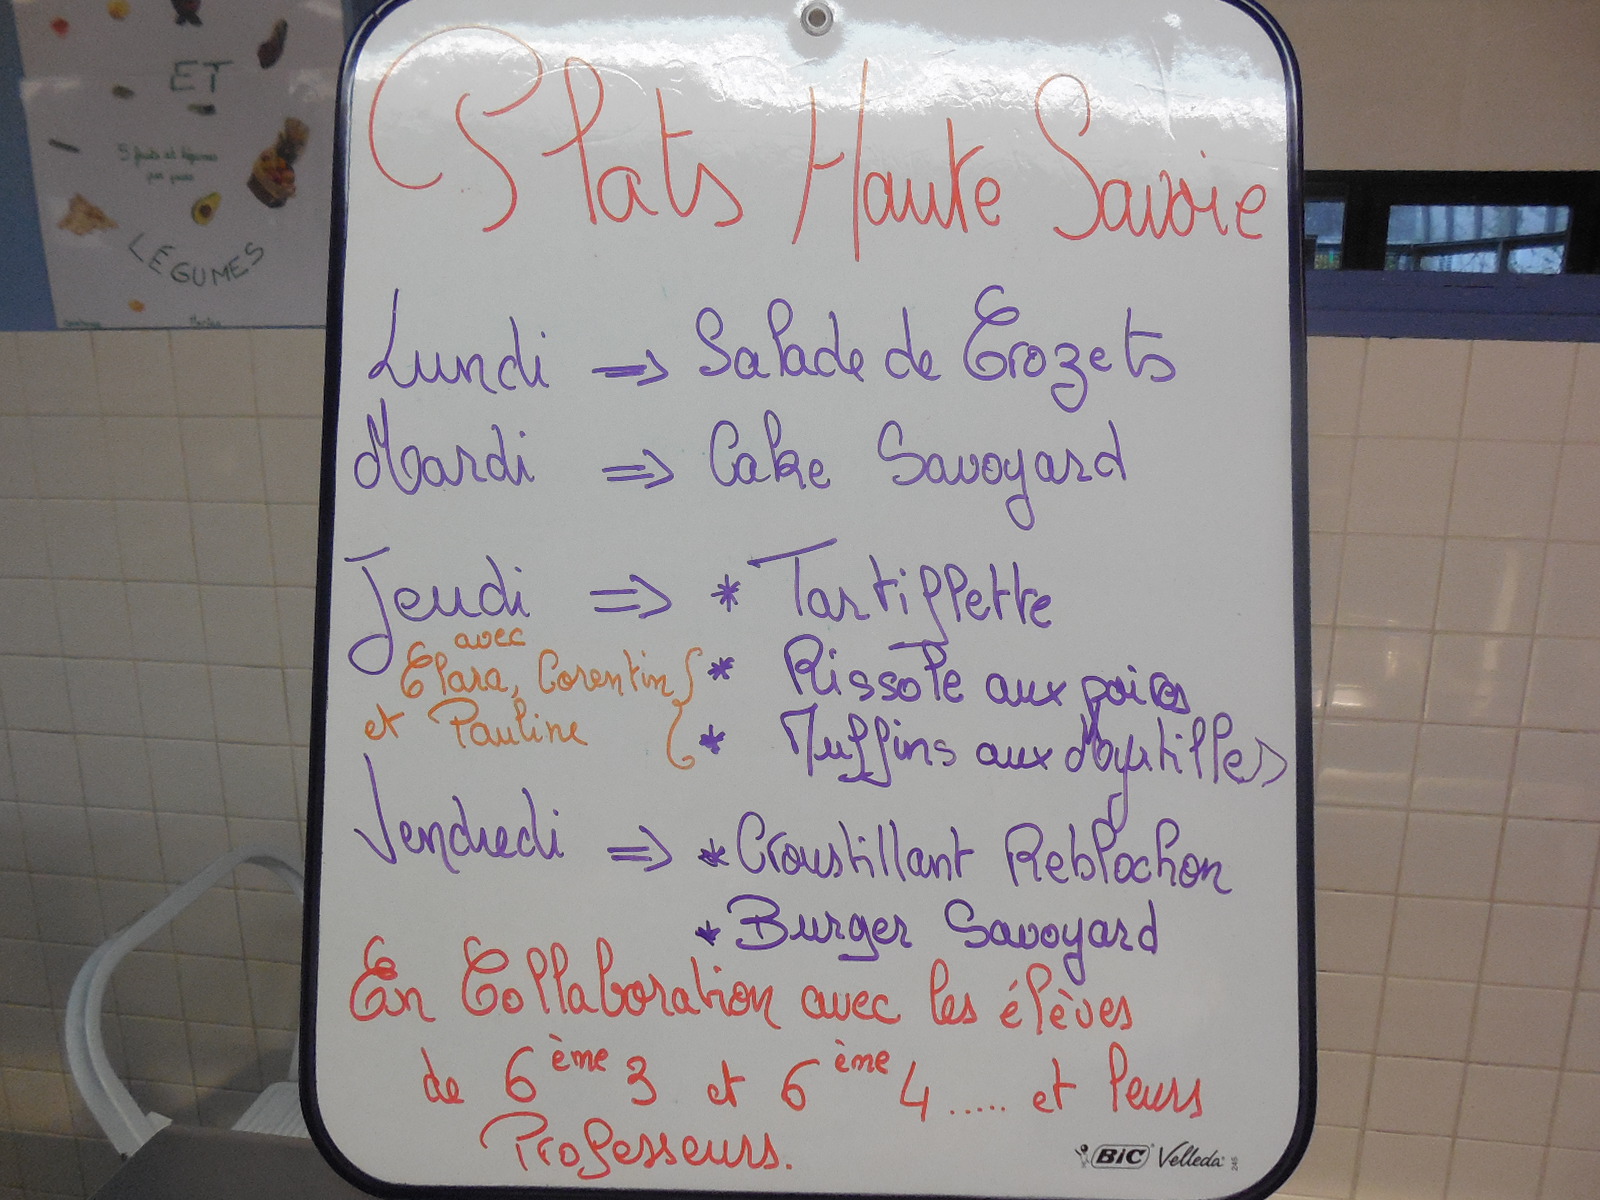 ET
5 fruits et légumes
par jour
LÉGUMES
Plats Haute Savoie
Lundi ⇒ Salade de Crozets
Mardi ⇒ Cake Savoyard
Jeudi ⇒ * Tartiflette
avec
Clara, Corentin * Rissole aux poires
et Pauline * Muffins aux Myrtilles
Vendredi ⇒ * Croustillant Reblochon
* Burger Savoyard
En Collaboration avec les élèves
de 6ème 3 et 6ème 4 ..... et leurs
Professeurs.
BIC Velleda